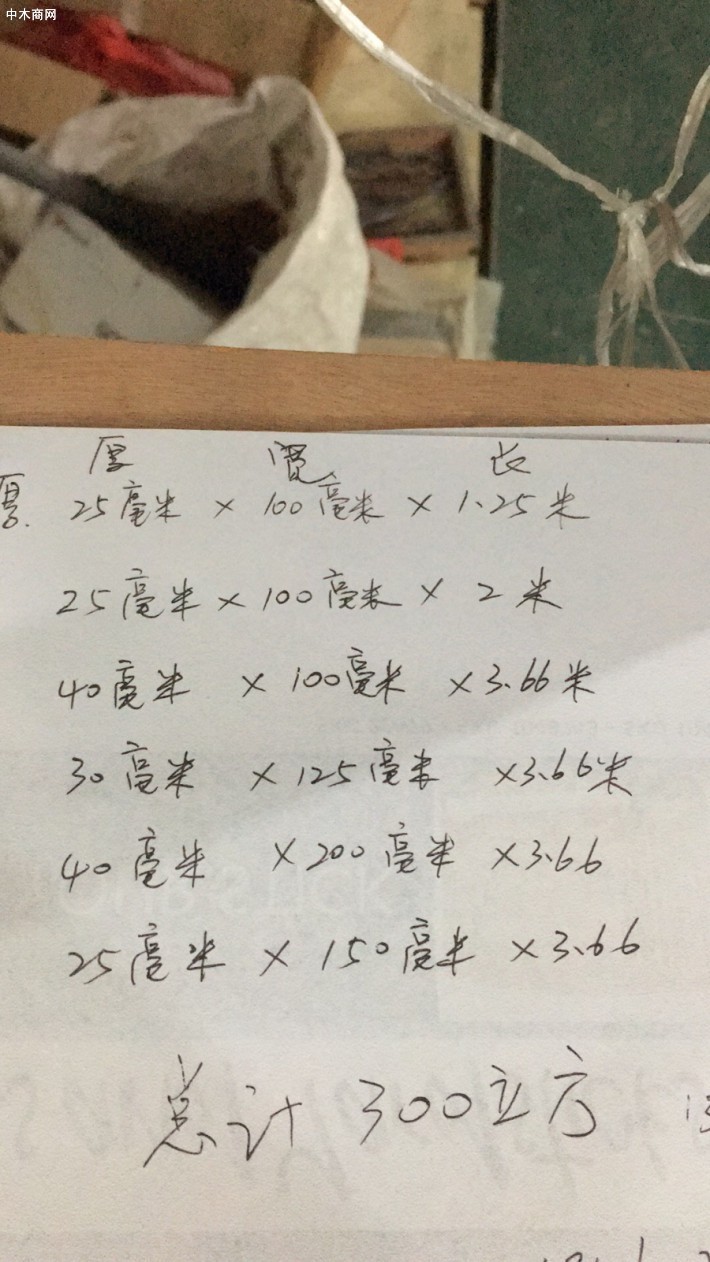 中木商网
厚 宽 长
25毫米 × 100毫米 × 1.25米
25毫米 × 100毫米 × 2米
40毫米 × 100毫米 × 3.66米
30毫米 × 125毫米 × 3.66米
40毫米 × 200毫米 × 3.66
25毫米 × 150毫米 × 3.66
总计 300立方